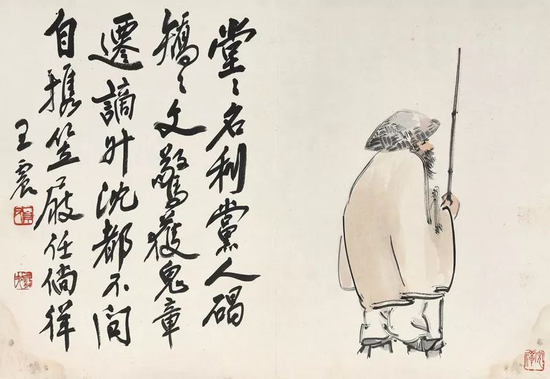 堂〻名利黨人碣
矯〻文驚獲鬼章
遷謫升沈都不問
自携笠屐任倘徉
王震